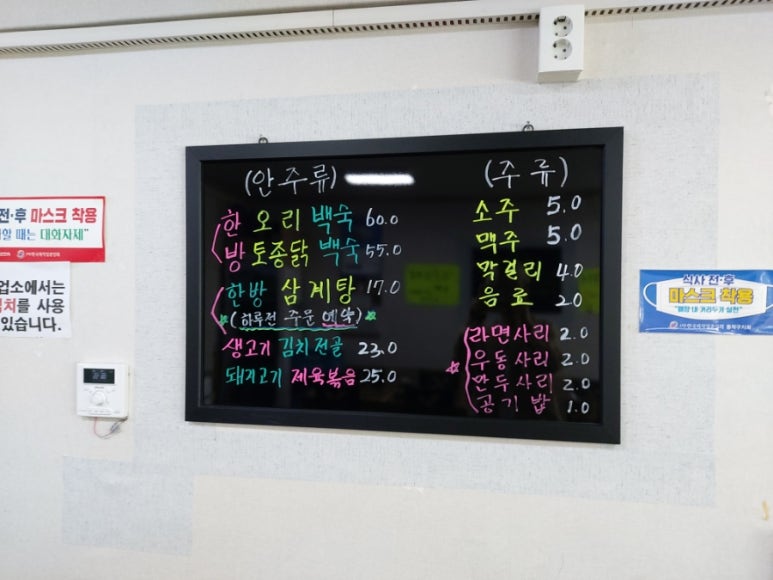 (안주류)
한방 오리 백숙 60.0
토종닭 백숙 55.0
한방 삼계탕 17.0
★(하루전 주문 예약)★
생고기 김치전골 23.0
돼지고기 제육볶음 25.0
(주류)
소주 5.0
맥주 5.0
막걸리 4.0
음료 2.0
라면사리 2.0
우동사리 2.0
만두사리 2.0
공기밥 1.0
전·후 마스크 착용
할 때는 대화자제"
업소에서는
김치를 사용
있습니다.
식사 전·후
마스크 착용